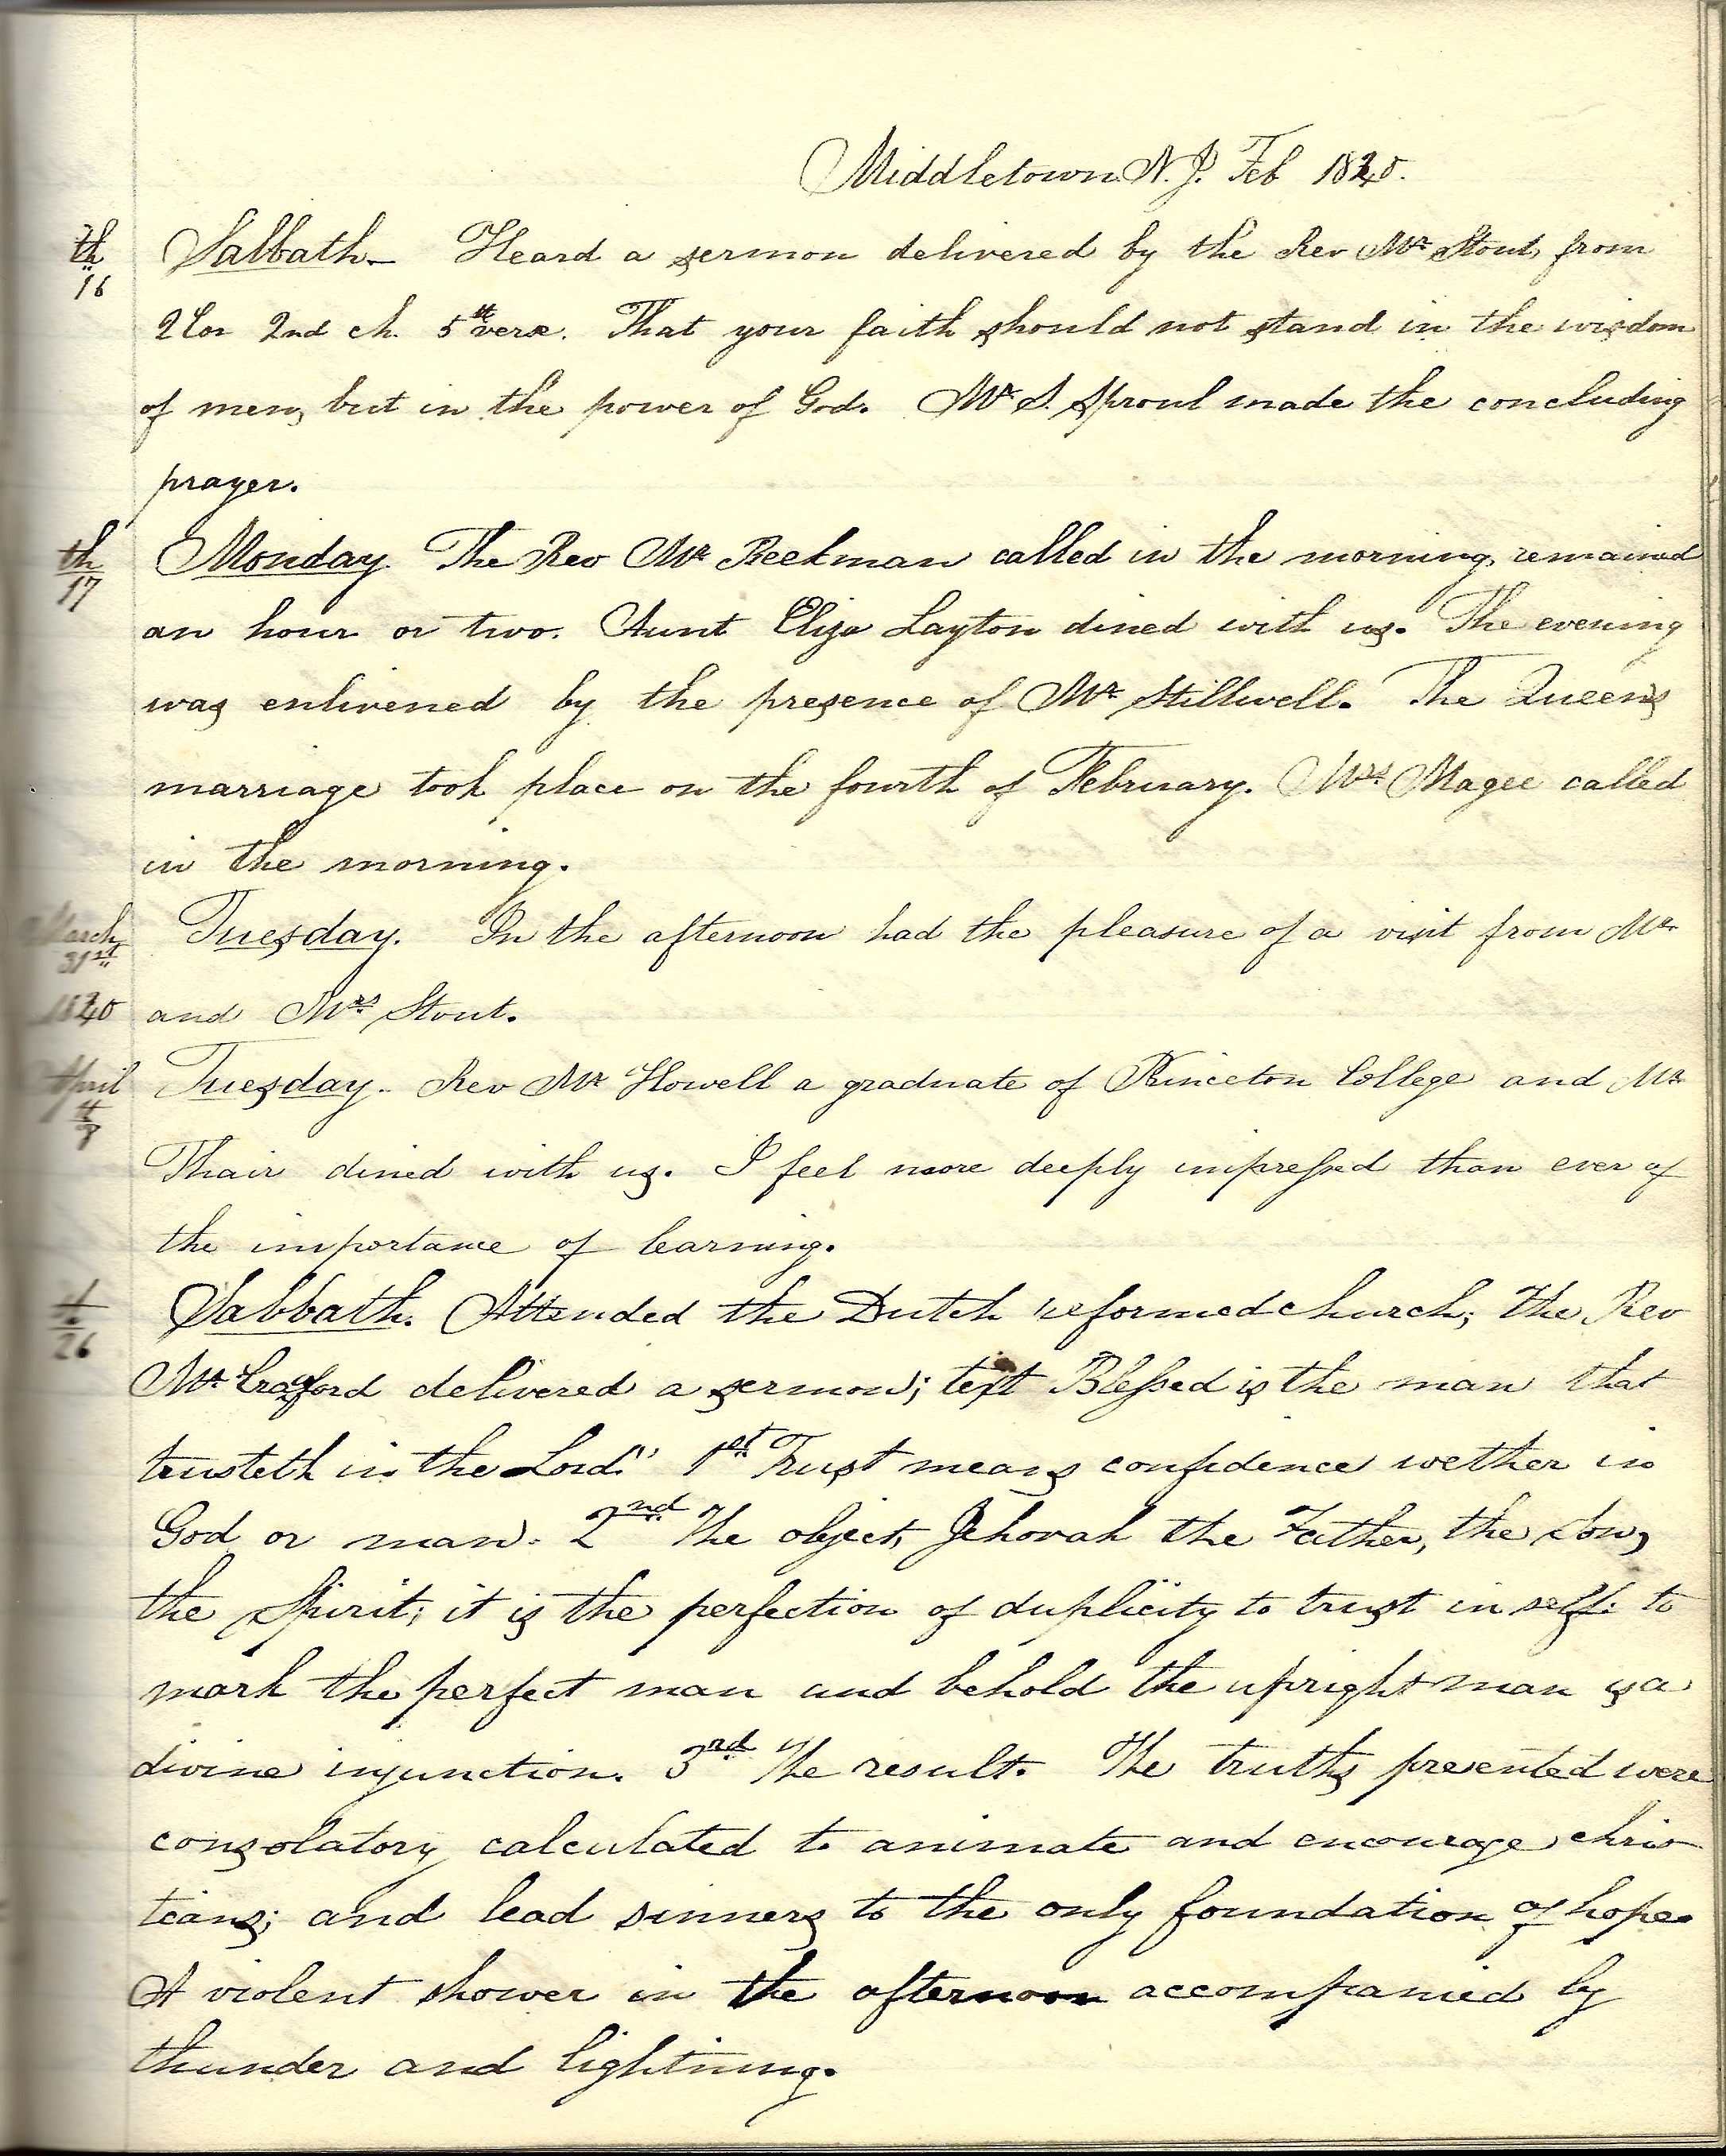 Middletown N. J. Feb 1840.
th
16
Sabbath— Heard a sermon delivered by the Rev Mr Stout, from
2 Cor 2nd ch. 5th verse. That your faith should not stand in the wisdom
of men, but in the power of God. Mr S. Sproul made the concluding
prayer.
th
17
Monday. The Rev Mr Beekman called in the morning, remained
an hour or two. Aunt Eliza Layton dined with us. The evening
was enlivened by the presence of Mr Stillwell. The Queens
marriage took place on the fourth of February. Mrs Magee called
in the morning.
March
31st
1840
Tuesday. In the afternoon had the pleasure of a visit from Mr
and Mrs Stout.
April
th
Tuesday. Rev Mr Howell a graduate of Princeton College and Mr
Thair dined with us. I feel more deeply impressed than ever of
the importance of learning.
26
Sabbath. Attended the Dutch reformed church; The Rev
Mr delivered a sermon; text Blessed is the man that
trusteth in the Lord" 1st Trust means confidence wether in
God or man. 2nd The object, Jehovah the Father, the Son,
the Spirit; it is the perfection of duplicity to trust in self: to
mark the perfect man and behold the upright man is a
divine injunction. 3rd The result. The truths presented were
consolatory calculated to animate and encourage chris
tians; and lead sinners to the only foundation of hope.
A violent shower in the afternoon accompanied by
thunder and lightning.